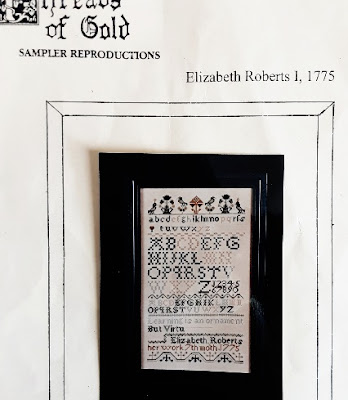 Threads
of Gold
SAMPLER REPRODUCTIONS
Elizabeth Roberts I, 1775
abcdefghikhmnopqrſs
tuvwxyz
ABCDEFG
HIJKL
OPQRSTV
Z12345
EFGHIK
OPQRSTUVW YZ
Learning is an ornament
But Virtu
Elizabeth Roberts
her work 7th moth 1775